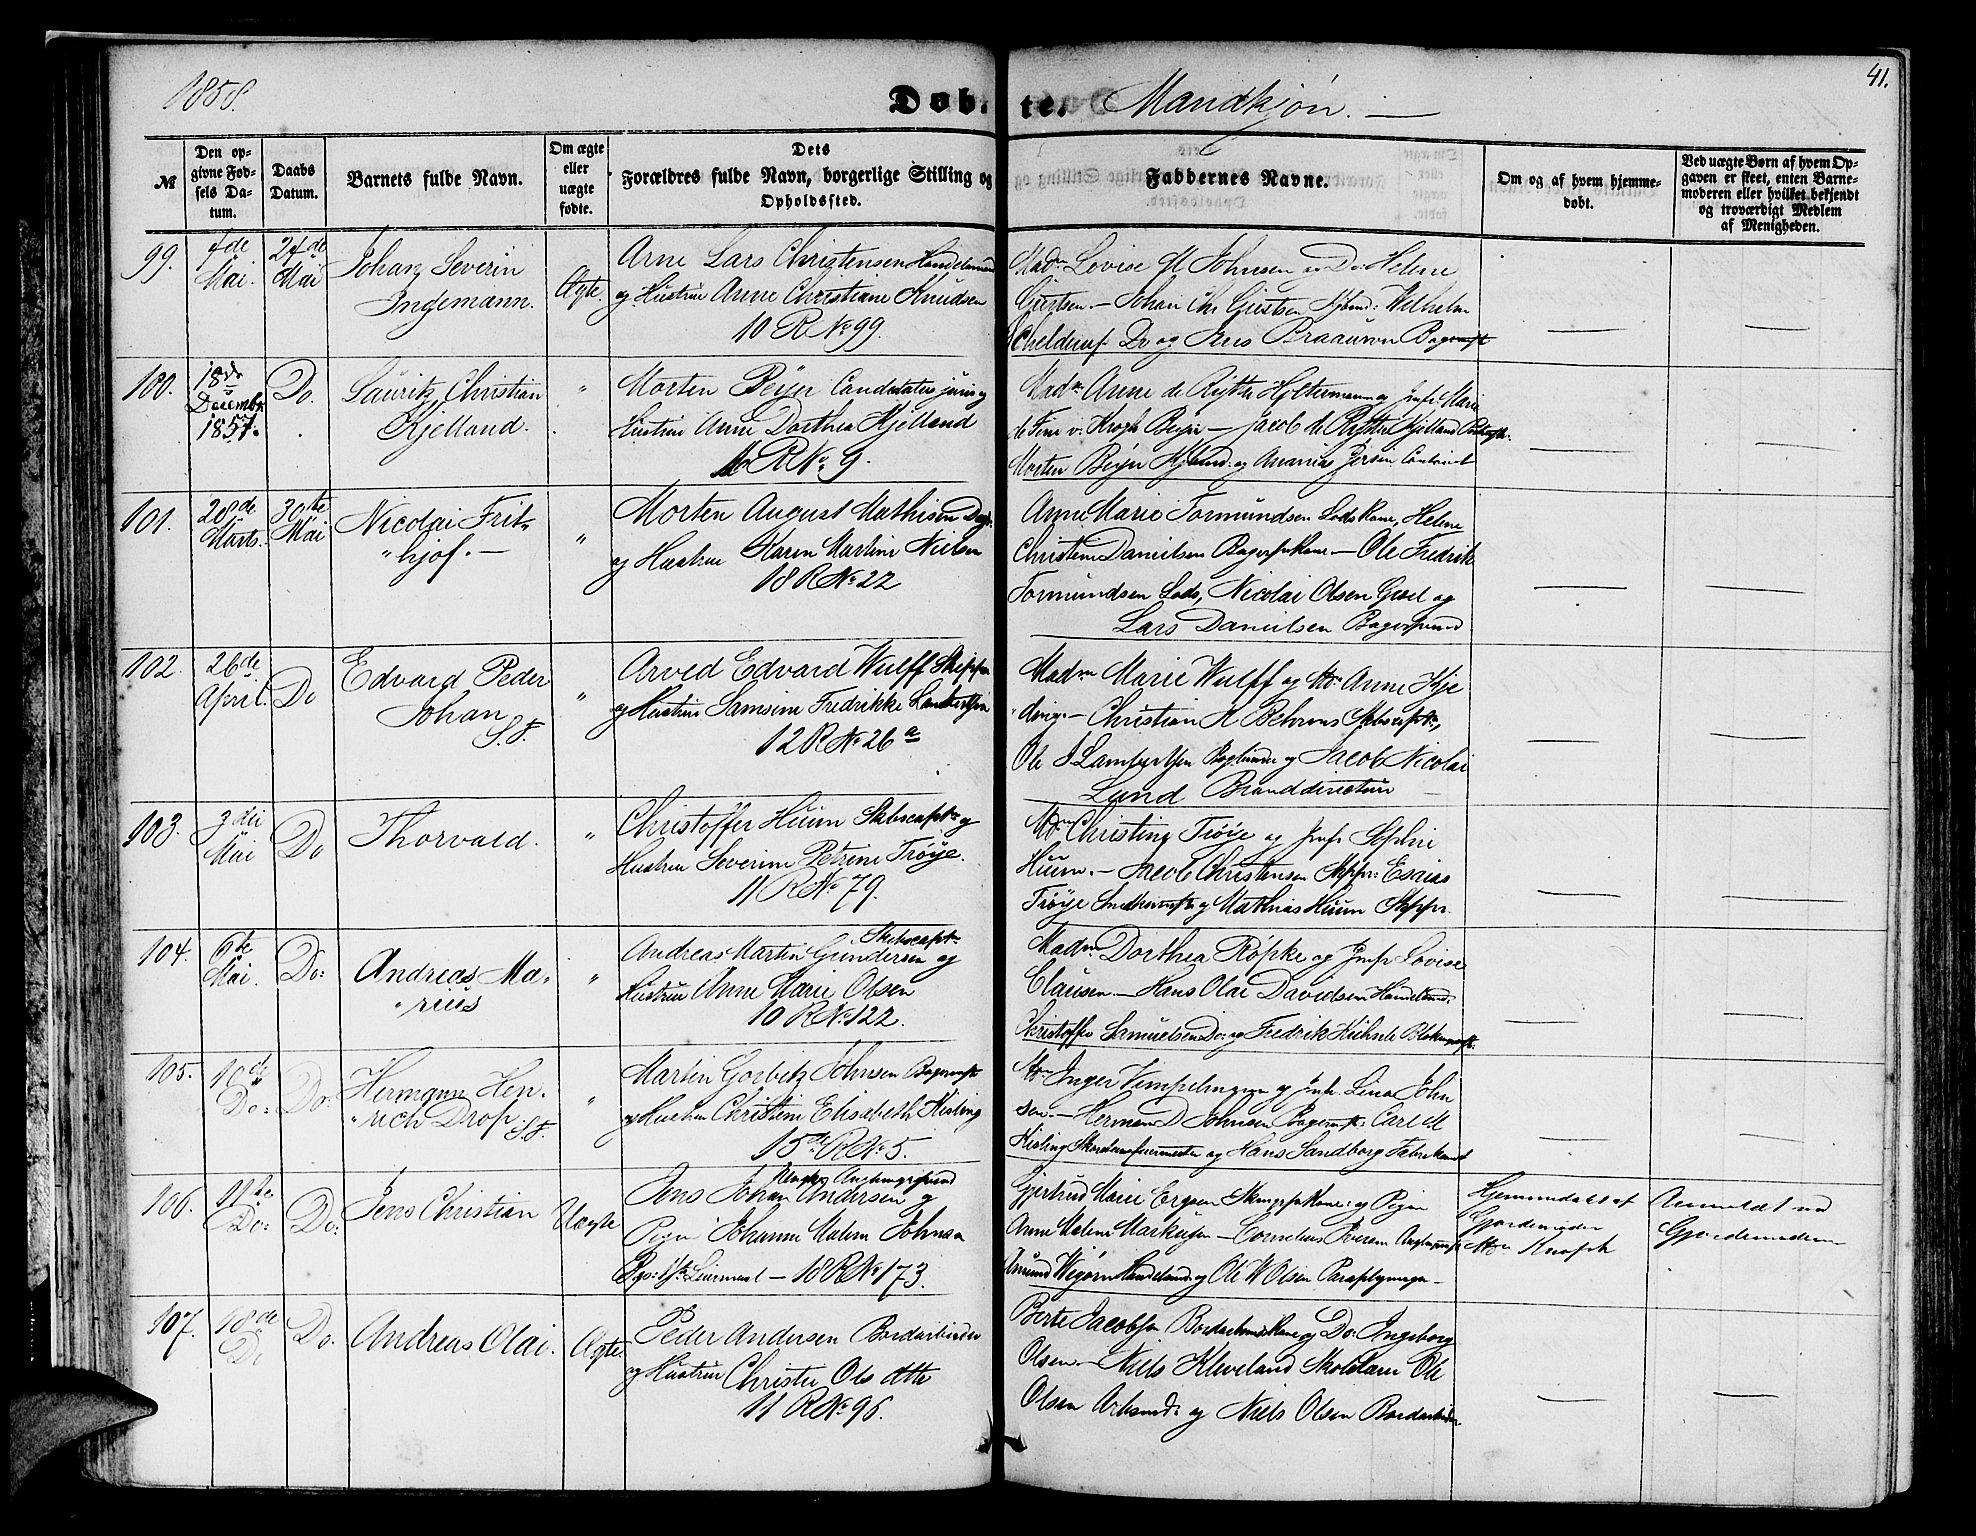 1858.
Døbte. Mandkjøn. —
41.
№
Den opgivne Fødsels Datum.
Daabs Datum.
Barnets fulde Navn.
Om ægte eller uægte fødte.
Dets Forældres fulde Navn, borgerlige Stilling og Opholdssted.
Faddernes Navne.
Om og af hvem hjemmedøbt.
Ved uægte Børn af hvem Opgaven er skeet, enten Barnemoderen eller hvilket bekjendt og troværdigt Medlem af Menigheden.
99.
4de Mai.
24de Mai
Johan Severin
Ingemann.
Ægte.
Arne Lars Christensen Handelsmand
og Hustru Anne Christiane Knudsen
10 R No 99.
Madm Lovise M Johnsen og Do Helene
Giertsen — Johan Chr Giertsen Kjbmd: Wilhelm
Schelderup Do og Jens Braausen Bagersv
100.
18de Decembr 1857.
Do.
Lauritz Christian
Kjelland.
"
Morten Beyer Candidatus juris og
Hustru Anne Dorthea Kjelland
16 R No 9.
Madm Anne de Rytter Holtermann og Jmfr Marie
de Fine v. Krogh Beyer — Jacob de Rytter Kjelland
Morten Beyer Kjbmd: og Ananias
101.
28de Marts.
30te Mai
Nicolai Frit-
"hjof. —
"
Morten August Mathisen
og Hustru Karen Martine Nielsen
18 R No 22
Anne Marie Tormundsen Lods Kone, Helene
Christine Danielsen Bagersv Kone — Ole Fredrik
Tormundsen Lods, Nicolai Olsen og
Lars Danielsen Bagersvend
102.
26de April.
Do
Edvard Peder
Johan
S.F.
"
Arved Edvard Wulff Skipper
og Hustru Samsine Fredrikke Lambertsen
12 R No 26 a
Madm Marie Wulff og Mdm Anne Kje
ding — Christian A Behrens Skbscapt,
Ole S Lambertsen og Jacob Nicolai
Lund Branddirecteur
103.
3die Mai
Do
Thorvald.
"
Christoffer Huum Skbscapt og
Hustru Severine Petrine Trøye.
11 R No 79.
Mdm Christine Trøye og Jmfr Sophie
Huum. — Jacob Christensen Skppr: Esaias
Trøye og Mathias Huum Skppr.
104.
6te Mai.
Do:
Andreas Ma-
"rius
"
Skibscapt:
Andreas Martin Gundersen og
Hustru Anne Marie Olsen
10 R No 122.
Madm Dorthea Røpke og Jmfr Lovise
Clausen. — Hans Olai Davidsen Handelsmd:
Christoffer Samuelsen Do: og Fredrik
105.
10de Do:
Do:
Hermann Hen-
"rich Drop. S.F.
"
Martin Gorbitz Johnsen Bagermst
og Hustru Christine Elisabeth Kisling
15de R No 5.
Mdm Inger Tempelmann og Jmfr Lina John
sen. — Herman D Johnsen Bagermst: Carl M
Kisling og Hans Sandborg Fabrikant
106.
11te Do:
Do:
Jens Christian
Uægte
Jens Johan Andersen og
Pigen Johanne Malene Johnsen
18 R No 173.
Gjertrud Marie og Pigen
Anne Malene Markusen — Cornelius
Amund og Ole W Olsen Paraplymager
Hjemmedøbt af
Gjordemoder
Mdm Knaph
Anmeldt ved
Gjordemoderen
107.
18de Do
Do.
Andreas Olai.
Ægte.
Peder Andersen Bordarbeider
og Hustru Christie Ols dtte
11 R No 96.
Berte Jacobsen Kone og Do: Ingeborg
Olsen. — Niels Kleveland Skolelærer Ole
Olsen Arbmd: og Niels Olsen Bordarbeider